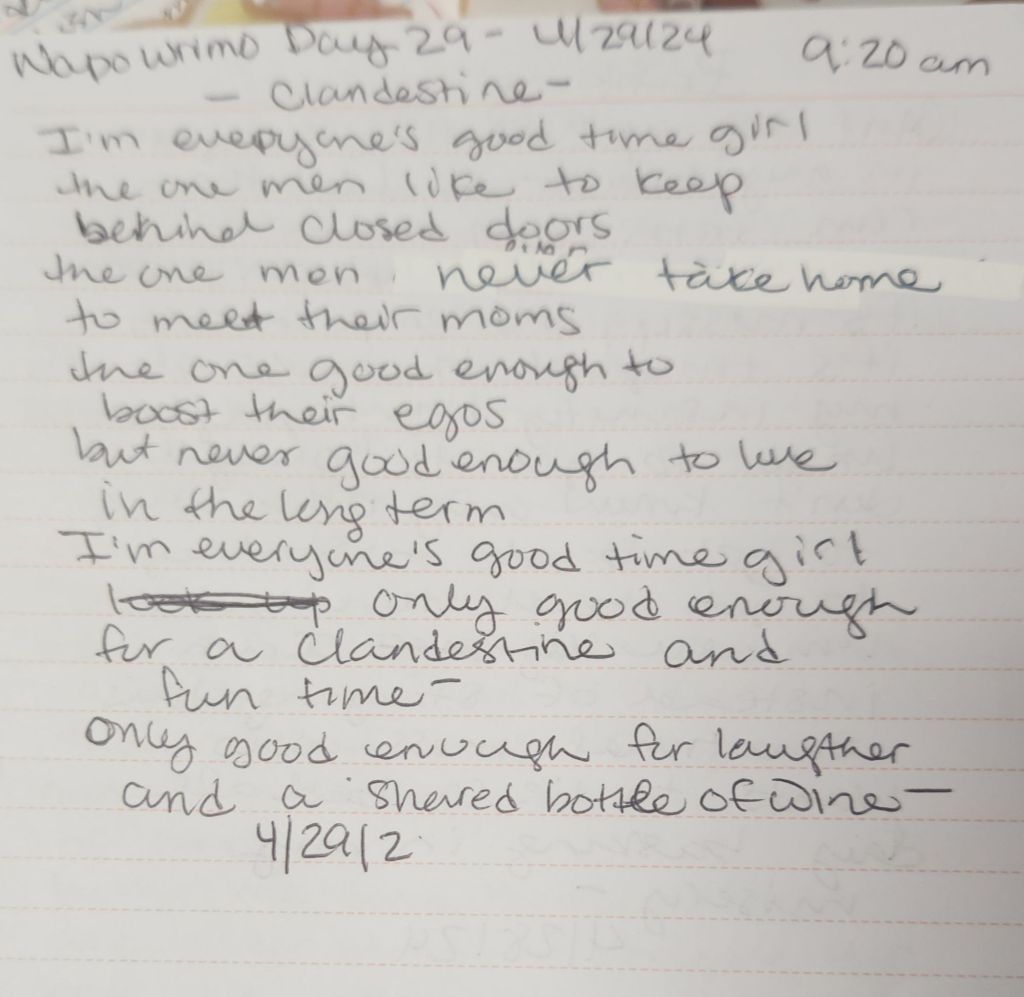 Napowrimo Day 29 - 4/29/24 9:20 am
- Clandestine -
I'm everyone's good time girl
the one men like to keep
behind closed doors
the one men never take home
to meet their moms
the one good enough to
boost their egos
but never good enough to love
in the long term
I'm everyone's good time girl
only good enough
for a clandestine and
fun time -
only good enough for laugther
and a shared bottle of wine -
4/29/2